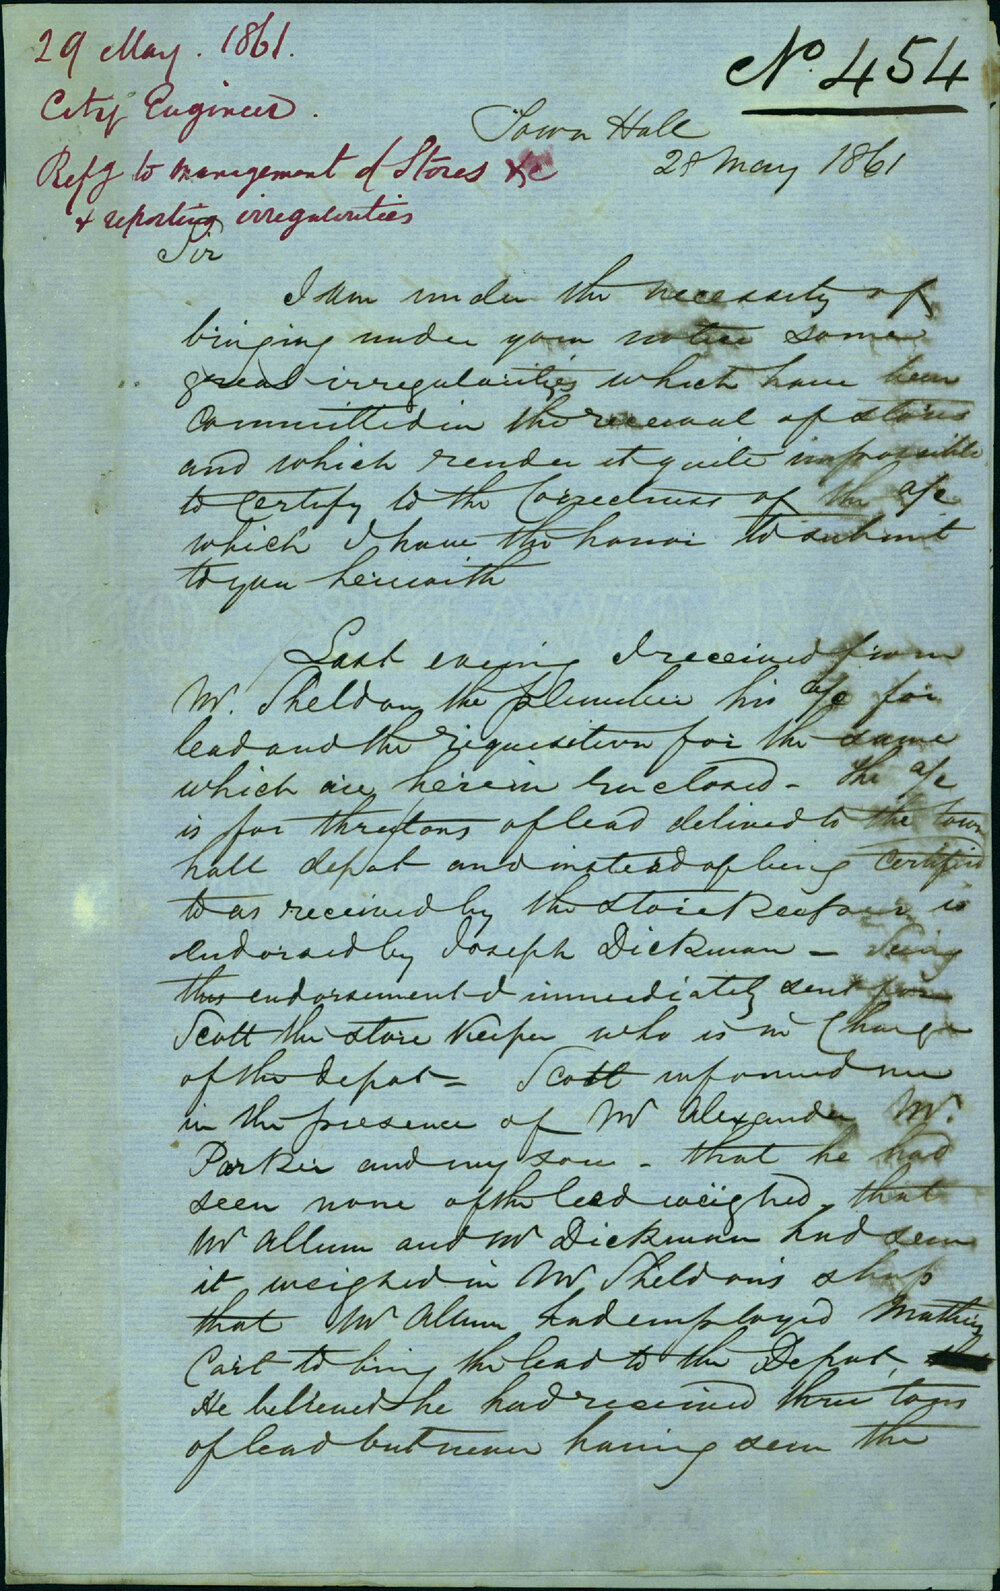 29 May. 1861.
City Engineer.
Refg to management of Stores &c
& reporting irregularities
No. 454
Town Hall
28 May 1861
Sir
I am under the necessity of
bringing under your notice some
great irregularities which have been
committed in the receival of stores
and which render it quite impossible
to certify to the correctness of the a/c
which I have the honor to submit
to you herewith
Last evening I received from
Mr. Sheldon the plumber his a/c for
lead and the requisition for the same
which are herein enclosed - the a/c
is for three tons of lead delived to the Town
hall depot and instead of being certified
to as received by the store Keeper is
endorsed by Joseph Dickman - Seeing
this endorsement I immediately sent for
Scott the store Keeper who is in Charge
of the depot - Scott informed me
in the presence of Mr Alexander Mr.
Parker and my son - that he had
seen none of the lead weighed, that
Mr Allum and Mr Dickman had seen
it weighed in Mr Sheldon's shop
that Mr Allum had employed Mathies
Cart to bring the lead to the Depot,
He believed he had received three tons
of lead but never having seen the